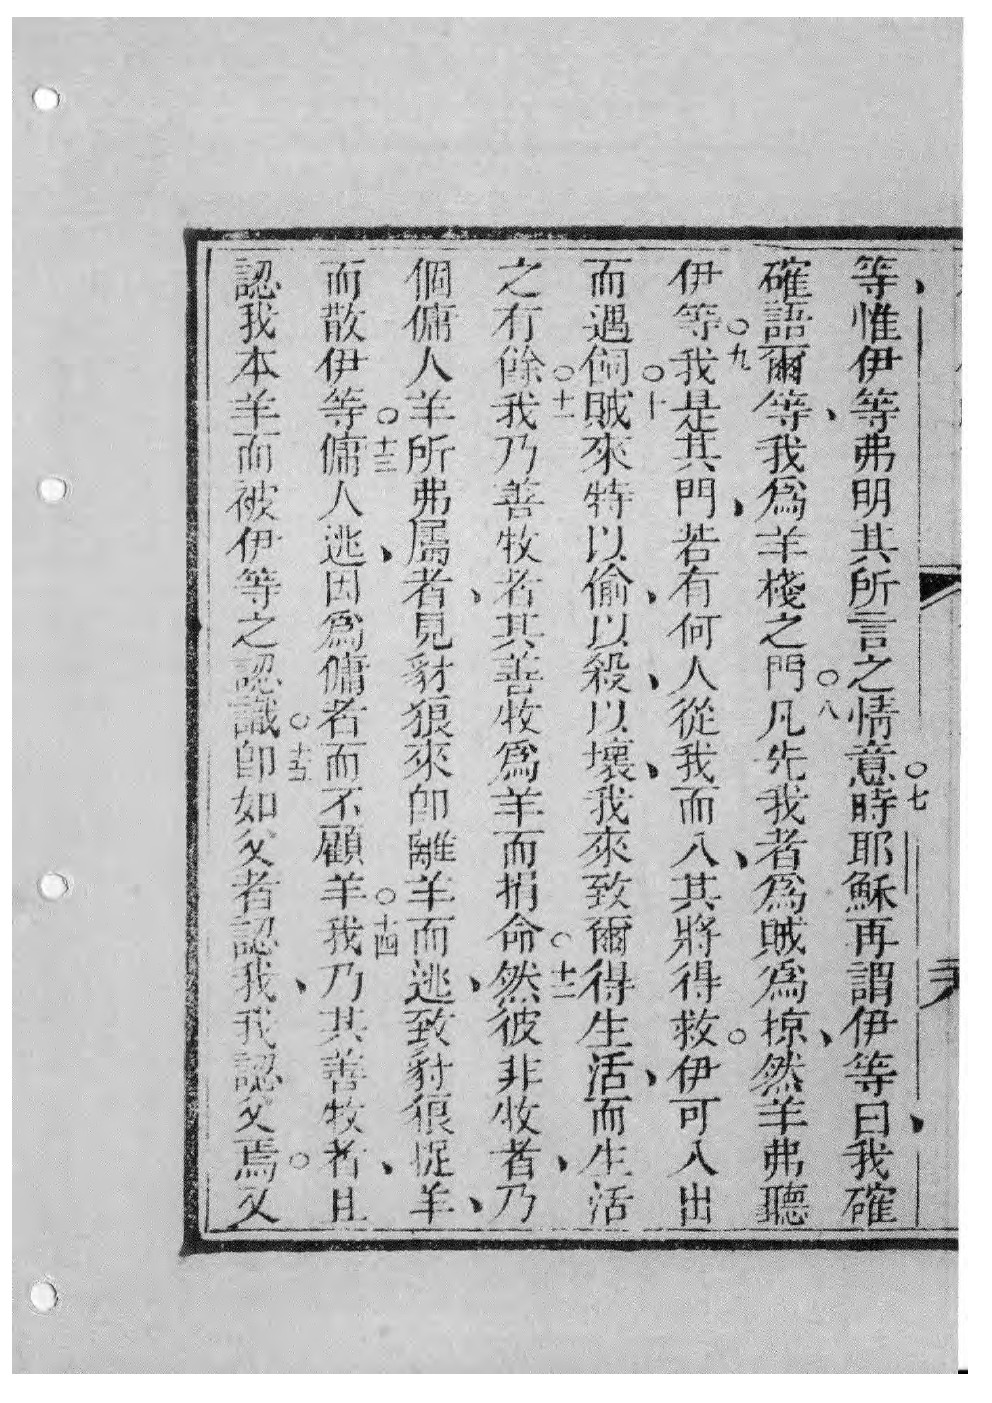 等惟伊等弗明其所言之情意○七時耶穌再謂伊等曰、我確
確語爾等、我為羊棧之門○八凡先我者為賊為掠、然羊弗聽
伊等○九我是其門、若有何人從我而入、其將得救。伊可入出
而遇飼○十賊來特以偷、以殺、以壞、我來致爾得生活、而生活
之有餘○十一我乃善牧者其善牧為羊而捐命○十二然彼非牧者、乃
個傭人羊所弗屬者、見豺狼來即離羊而逃、致豺狼捉羊、
而散伊等○十三傭人逃、因為傭者而不顧羊○十四我乃其善牧者、且
認我本羊而被伊等之認識○十五即如父者認我、我認父焉。父